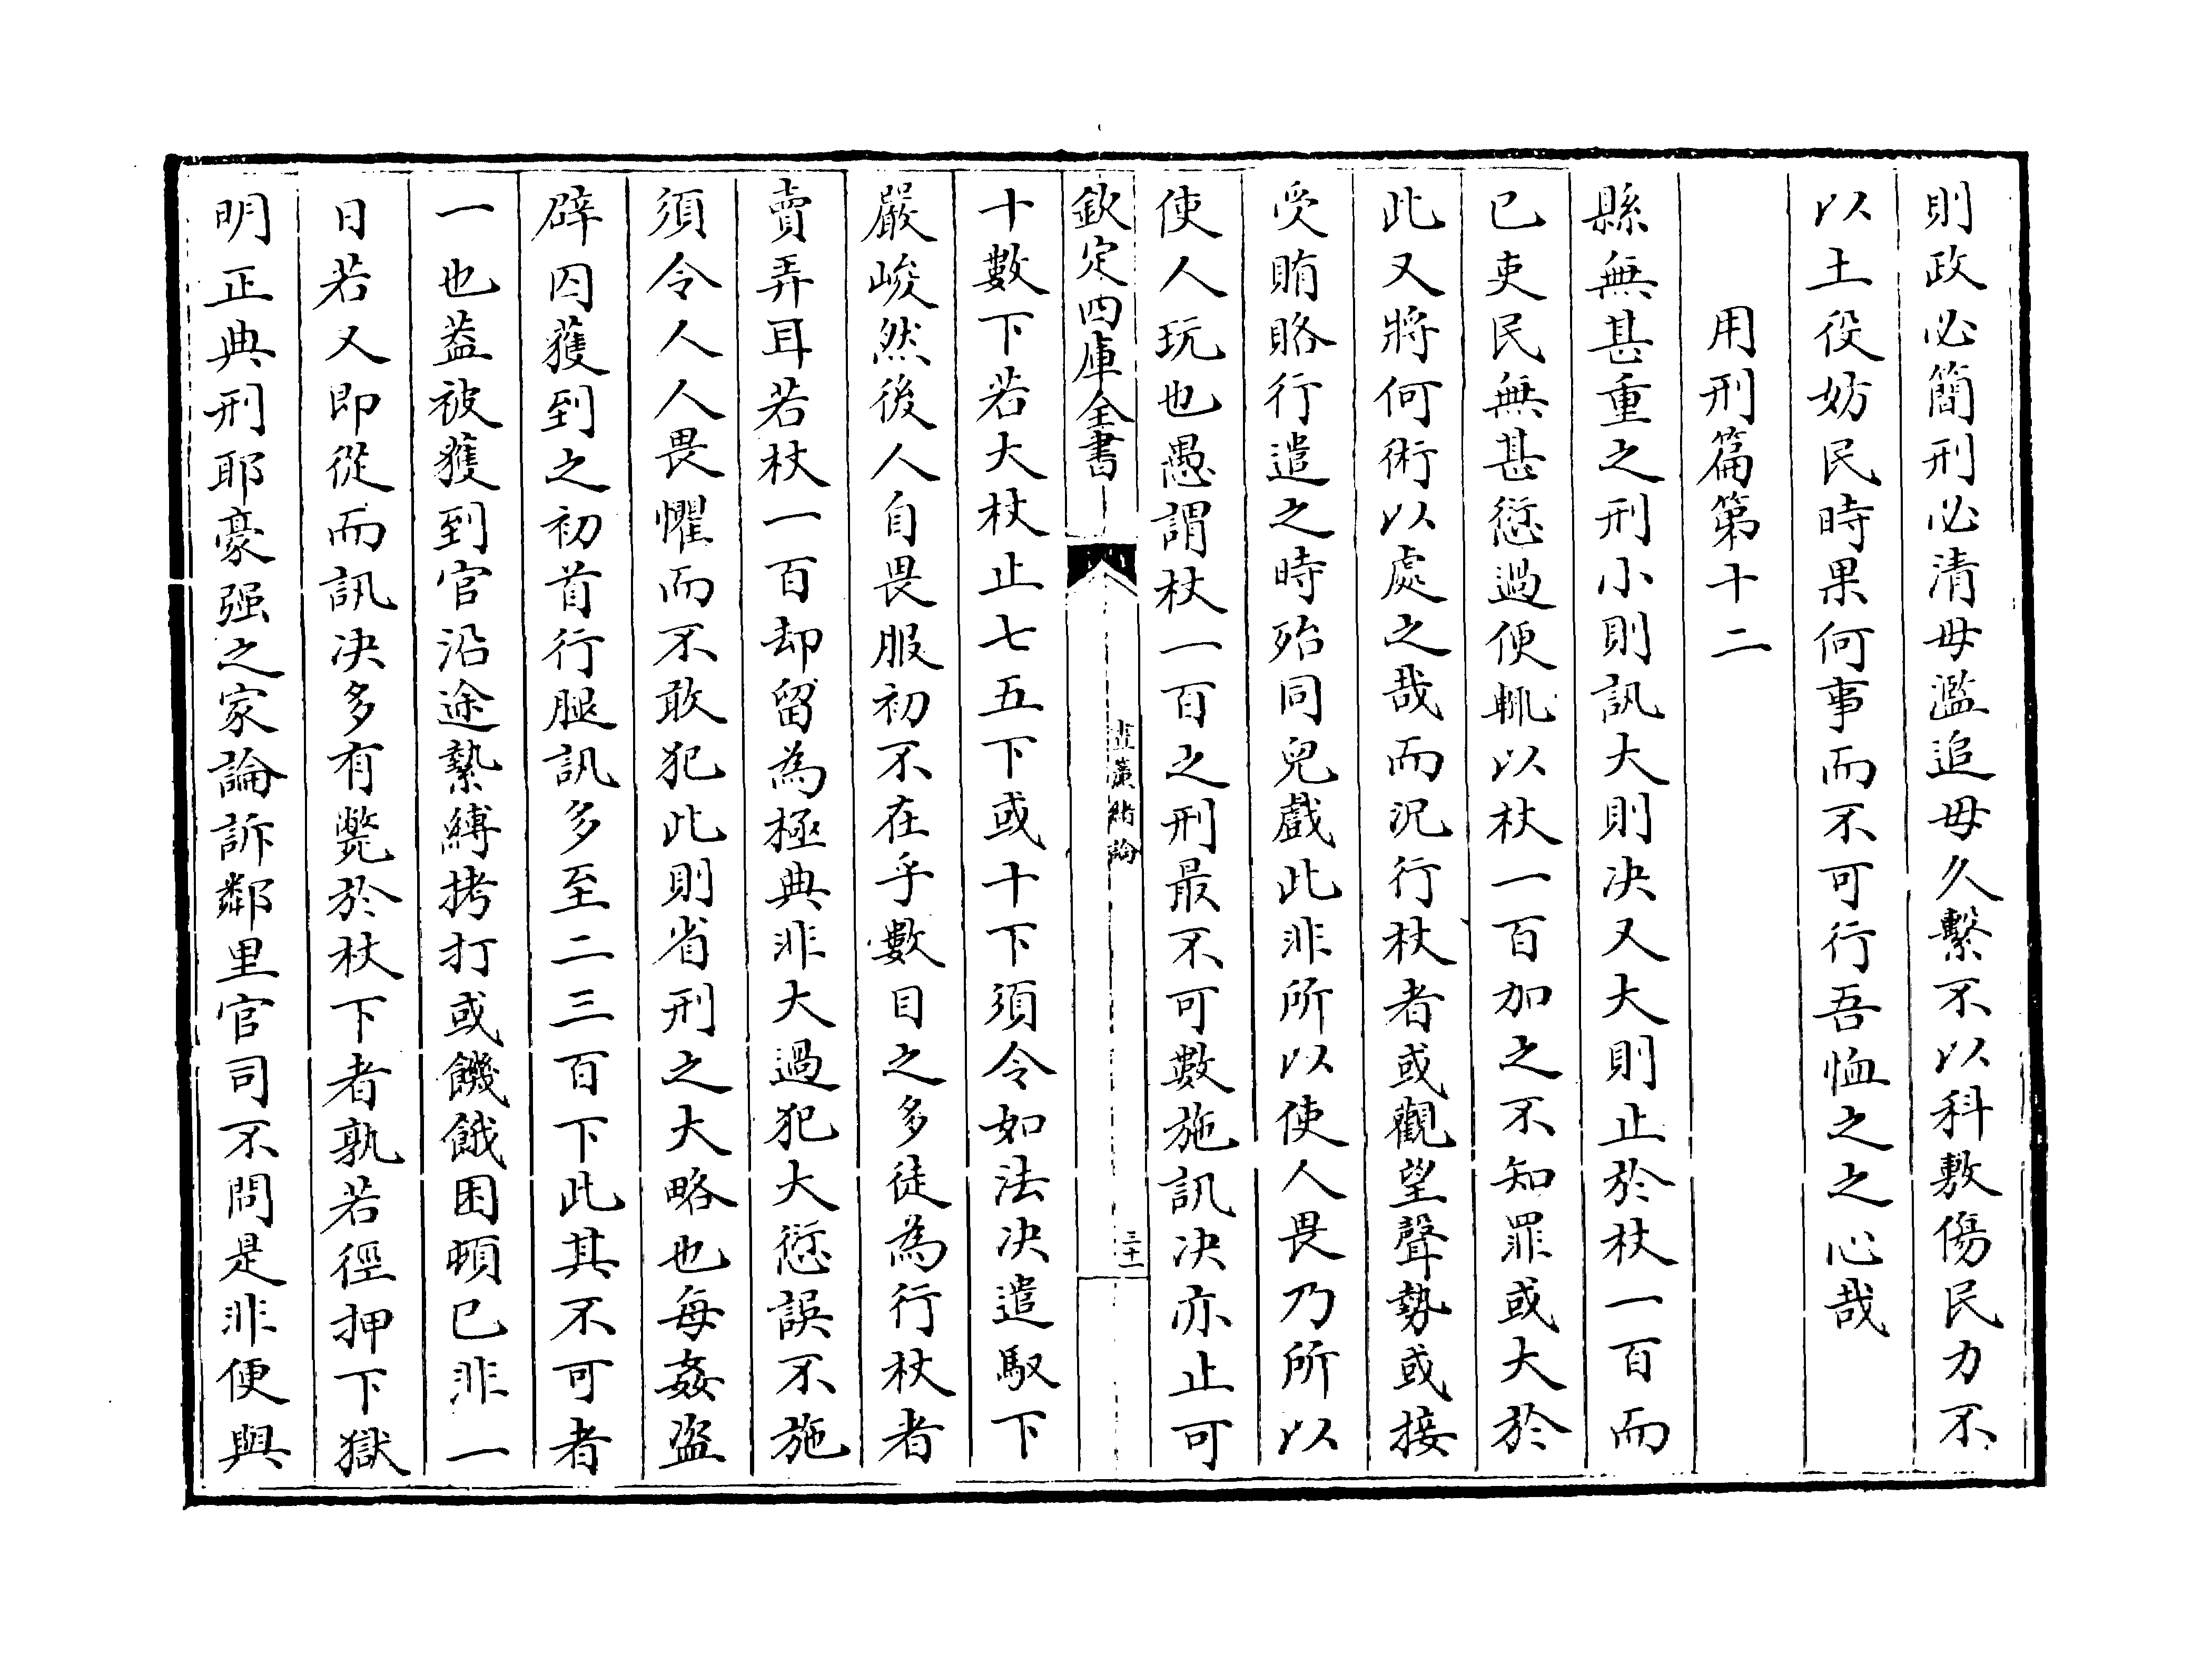 則政必簡刑必清毋濫追毋久繫不以科敷傷民力不
以土役妨民時果何事而不可行吾恤之之心哉
用刑篇第十二
縣無甚重之刑小則訊大則决又大則止於杖一百而
已吏民無甚愆過便輒以杖一百加之不知罪或大於
此又將何術以處之哉而况行杖者或觀望聲勢或接
受賄賂行遣之時殆同兒戲此非所以使人畏乃所以
使人玩也愚謂杖一百之刑最不可數施訊决亦止可
欽定四庫全書
晝簾緒論
三十一
十數下若大杖止七五下或十下須令如法决遣馭下
嚴峻然後人自畏服初不在乎數目之多徒為行杖者
賣弄耳若杖一百却留為極典非大過犯大愆誤不施
須令人人畏懼而不敢犯此則省刑之大略也每姦盜
辟囚獲到之初首行腿訊多至二三百下此其不可者
一也葢被獲到官沿途縶縛拷打或饑餓困頓已非一
日若又即從而訊决多有斃於杖下者孰若徑押下獄
明正典刑耶豪强之家論訴鄰里官司不問是非便與